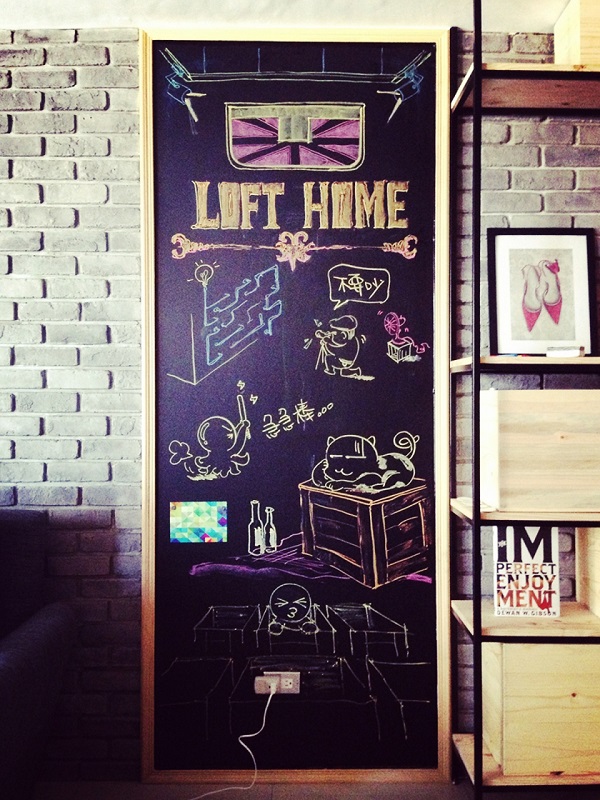 LOFT HOME
不要吵
急急棒...
IM
PERFECT
ENJOY
MENT
DEWAN W. GIBSON